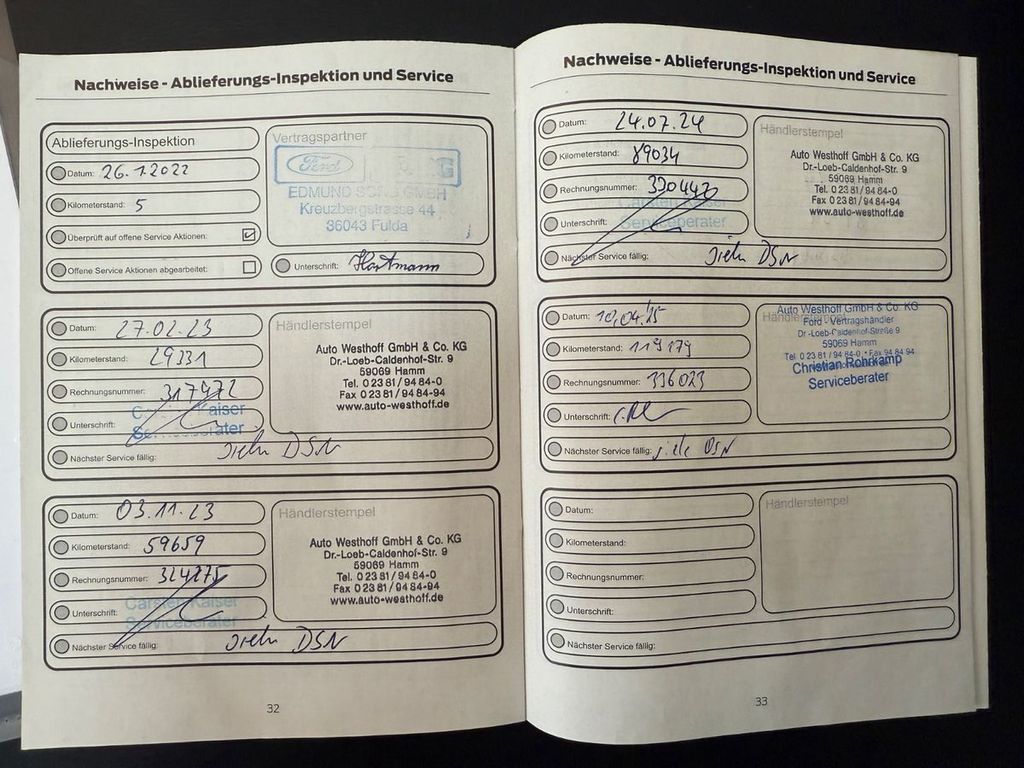 Nachweise - Ablieferungs-Inspektion und Service
Ablieferungs-Inspektion
Datum: 26.1.2022
Kilometerstand: 5
Überprüft auf offene Service Aktionen:
Offene Service Aktionen abgearbeitet:
Vertragspartner
Ford
EDMUND GMBH
Kreuzbergstrasse 44
36043 Fulda
Unterschrift: Hartmann
Datum: 27.02.23
Kilometerstand: 29331
Rechnungsnummer: 317972
Unterschrift:
Kaiser
Serviceberater
Nächster Service fällig: siehe DSN
Händlerstempel
Auto Westhoff GmbH & Co. KG
Dr.-Loeb-Caldenhof-Str. 9
59069 Hamm
Tel. 0 23 81 / 94 84-0
Fax 0 23 81 / 94 84-94
www.auto-westhoff.de
Datum: 03.11.23
Kilometerstand: 59659
Rechnungsnummer: 324275
Unterschrift:
Carsten Kaiser
Serviceberater
Nächster Service fällig: siehe DSN
Händlerstempel
Auto Westhoff GmbH & Co. KG
Dr.-Loeb-Caldenhof-Str. 9
59069 Hamm
Tel. 0 23 81 / 94 84-0
Fax 0 23 81 / 94 84-94
www.auto-westhoff.de
32
Nachweise - Ablieferungs-Inspektion und Service
Datum: 24.07.24
Kilometerstand: 89034
Rechnungsnummer:
Unterschrift:
Carsten Kaiser
Serviceberater
Nächster Service fällig: siehe DSN
Händlerstempel
Auto Westhoff GmbH & Co. KG
Dr.-Loeb-Caldenhof-Str. 9
59069 Hamm
Tel. 0 23 81 / 94 84-0
Fax 0 23 81 / 94 84-94
www.auto-westhoff.de
Datum: 10.04.25
Kilometerstand: 119179
Rechnungsnummer: 336023
Unterschrift:
Nächster Service fällig: siehe DSN
Händlerstempel
Auto Westhoff GmbH & Co. KG
Ford - Vertragshändler
Dr.-Loeb-Caldenhof-Straße 9
59069 Hamm
Tel. 0 23 81 / 94 84-0 * Fax 94 84 94
Christian Rohrkamp
Serviceberater
Datum:
Kilometerstand:
Rechnungsnummer:
Unterschrift:
Nächster Service fällig:
Händlerstempel
33